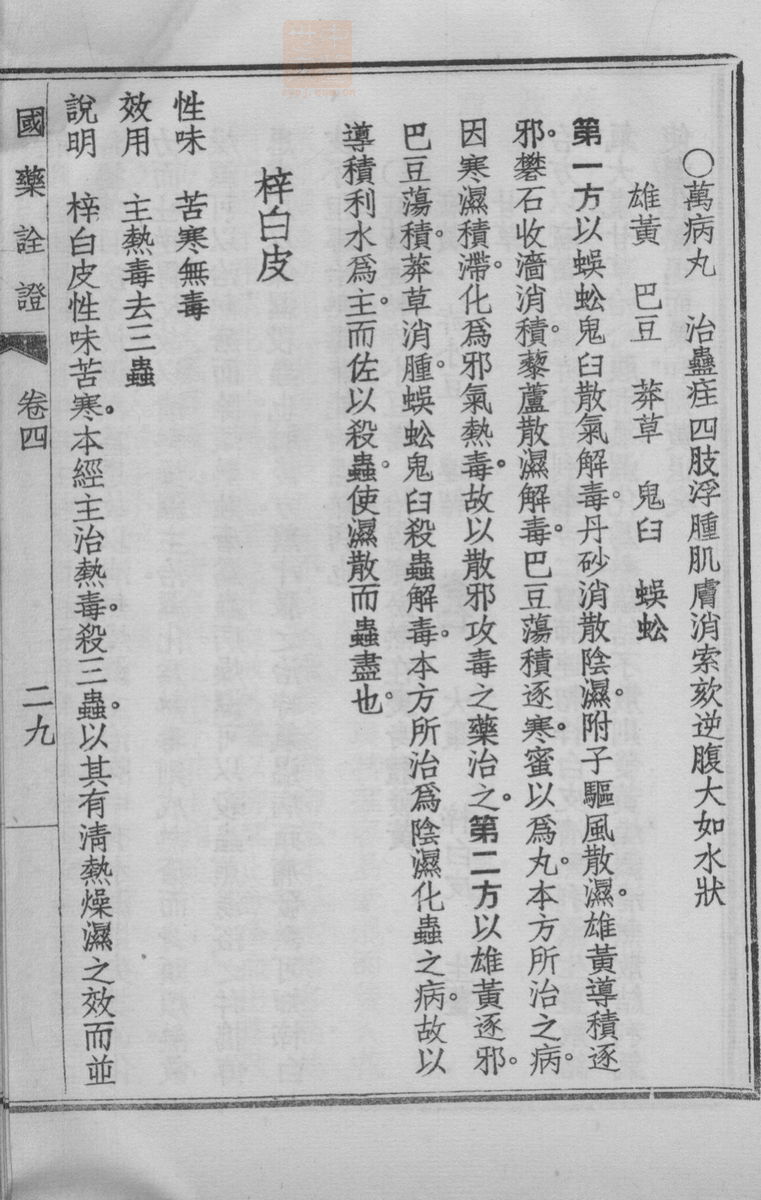 〇萬病丸　治蠱疰四肢浮腫肌膚消索欬逆腹大如水狀
雄黃　巴豆　莽草　鬼臼　蜈蚣
第一方以蜈蚣鬼臼散氣解毒。丹砂消散陰濕。附子驅風散濕。雄黃導積逐
邪。礬石收濇消積。藜蘆散濕解毒。巴豆蕩積逐寒。蜜以爲丸。本方所治之病。
因寒濕積滯。化爲邪氣熱毒。故以散邪攻毒之藥治之。第二方以雄黃逐邪。
巴豆蕩積。莽草消腫。蜈蚣鬼臼殺蟲解毒。本方所治爲陰濕化蟲之病。故以
導積利水爲主。而佐以殺蟲。使濕散而蟲盡也。
梓白皮
性味　苦寒無毒
效用　主熱毒去三蟲
說明　梓白皮性味苦寒。本經主治熱毒。殺三蟲。以其有淸熱燥濕之效而並
國藥詮證　卷四　二九